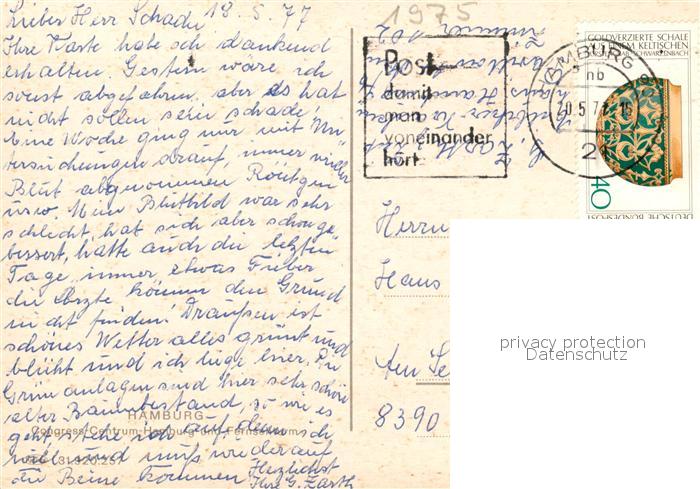 Lieber Herr Schade 18.5.77
Ihre Karte habe ich dankend
erhalten. Gestern wäre ich
sonst abgefahren, aber es hat
nicht sollen sein schade!
Eine Woche ging nur mit "Un
tersuchungen" drauf, immer wieder
Blut abgenommen Röntgen
usw. Mein Blutbild war sehr
schlecht, hat sich aber schon ge
bessert, hatte auch die letzten
Tage immer etwas Fieber
die Ärzte können den Grund
nicht finden! Draußen ist
schönes Wetter alles grünt und
blüht und ich liege hier. Die
Grünanlagen sind hier sehr schön
alter Baumbestand, so wie es
geht, stehe ich auf, denn ich
will und muß wieder auf
die Beine kommen Herzlichst
Ihre G. Zarth
HAMBURG
Congress-Centrum Hamburg und Fernsehturm
1975
Post
damit
man
voneinander
hört
HAMBURG
nb
20.5.77
2
GOLDVERZIERTE SCHALE
AUS EINEM KELTISCHEN
FÜRSTENGRAB, SCHWARZENBACH
40
DEUTSCHE BUNDESPOST
Herrn
Hans
Am Se
8390
privacy protection
Datenschutz